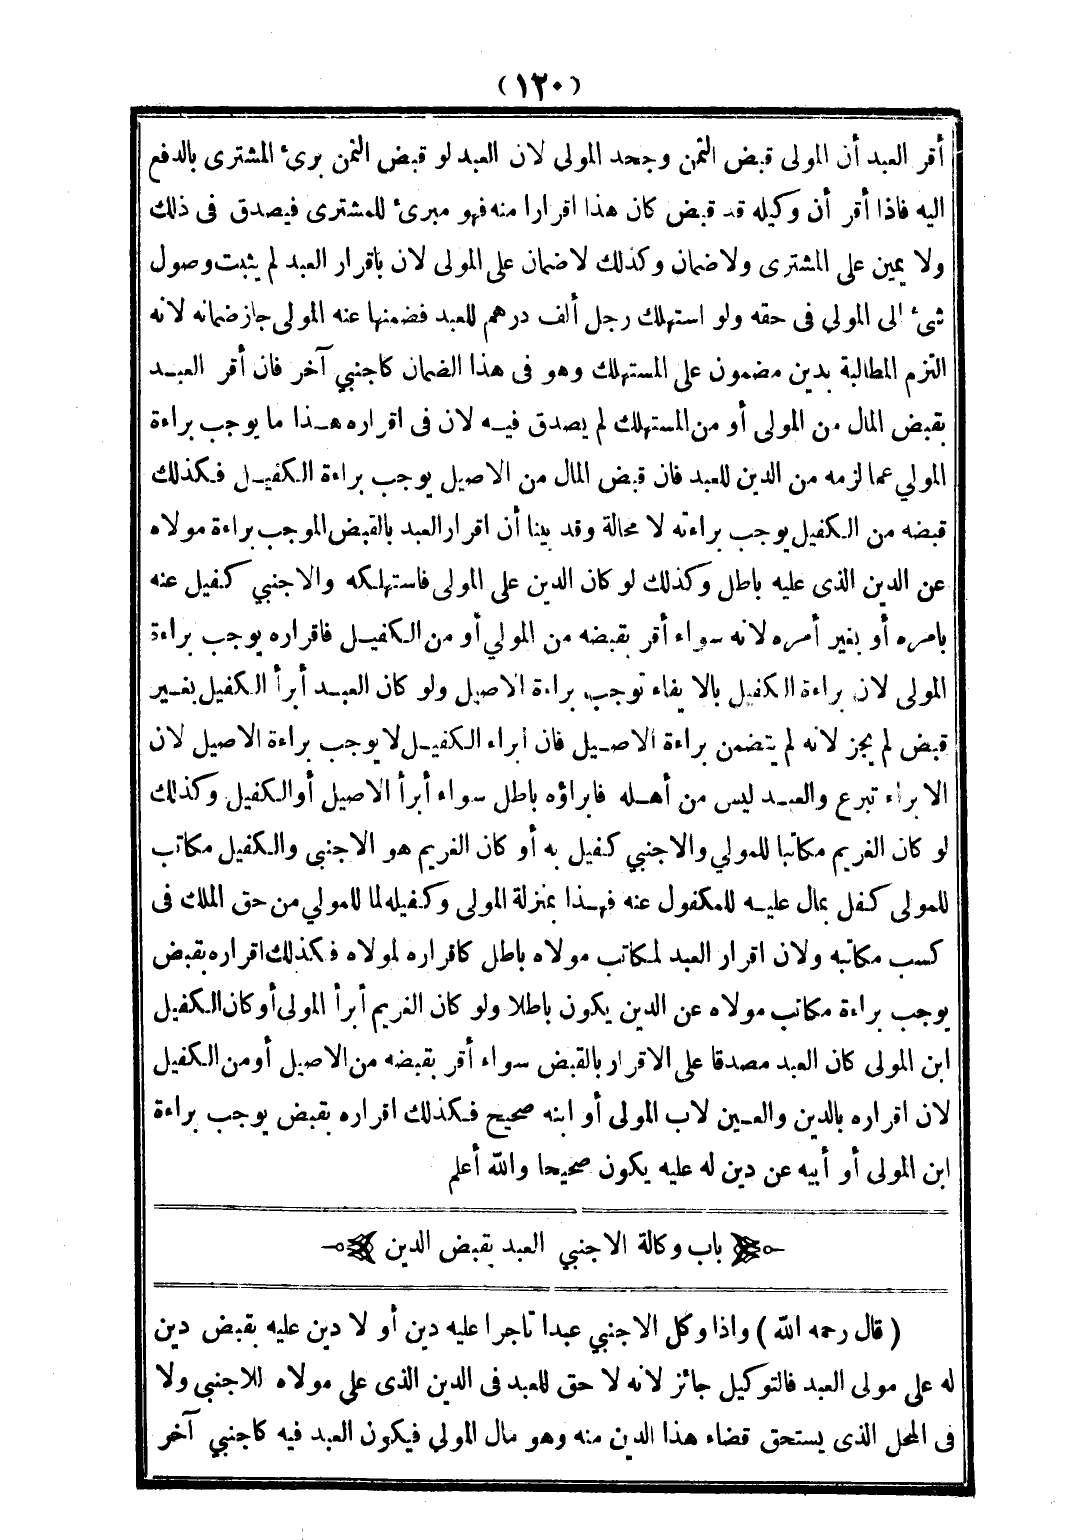 (١٢٠)
أقر العبد أن المولى قبض الثمن وجحد المولى لان العبد لو قبض الثمن برئ المشترى بالدفع
اليه فاذا أقر أن وكيله قد قبض كان هذا اقرارا منه فهو مبرئ للمشترى فيصدق فى ذلك
ولا يمين على المشترى ولا ضمان وكذلك لا ضمان على المولى لان باقرار العبد لم يثبت وصول
شئ الى المولى فى حقه ولو استهلك رجل ألف درهم للعبد فضمنها عنه المولى جاز ضمانه لانه
التزم المطالبة بدين مضمون على المستهلك وهو فى هذا الضمان كاجنبي آخر فان أقر العبد
بقبض المال من المولى أو من المستهلك لم يصدق فيه لان فى اقراره هذا ما يوجب براءة
المولي عما لزمه من الدين للعبد فان قبض المال من الاصيل يوجب براءة الكفيل فكذلك
قبضه من الكفيل يوجب براءته لا محالة وقد بينا أن اقرار العبد بالقبض الموجب براءة مولاه
عن الدين الذى عليه باطل وكذلك لو كان الدين على المولى فاستهلكه والاجنبي كفيل عنه
بامره أو بغير أمره لانه سواء أقر بقبضه من المولي أو من الكفيل فاقراره يوجب براءة
المولى لان براءة الكفيل بالايفاء توجب براءة الاصيل ولو كان العبد أبرأ الكفيل بغير
قبض لم يجز لانه لم يتضمن براءة الاصيل فان ابراء الكفيل لا يوجب براءة الاصيل لان
الابراء تبرع والعبد ليس من أهله فابراؤه باطل سواء أبرأ الاصيل أو الكفيل وكذلك
لو كان الغريم مكاتبا للمولي والاجنبي كفيل به أو كان الغريم هو الاجنبى والكفيل مكاتب
للمولى كفل بمال عليه للمكفول عنه فهذا بمنزلة المولى وكفيله لما للمولي من حق الملك فى
كسب مكاتبه ولان اقرار العبد لمكاتب مولاه باطل كاقراره لمولاه فكذلك اقراره بقبض
يوجب براءة مكاتب مولاه عن الدين يكون باطلا ولو كان الغريم أبرأ المولى أو كان الكفيل
ابن المولى كان العبد مصدقا على الاقرار بالقبض سواء أقر بقبضه من الاصيل أو من الكفيل
لان اقراره بالدين والعين لاب المولى أو ابنه صحيح فكذلك اقراره بقبض يوجب براءة
ابن المولى أو أبيه عن دين له عليه يكون صحيحا والله أعلم
باب وكالة الاجنبي العبد بقبض الدين
(قال رحمه الله) واذا وكل الاجنبي عبدا تاجرا عليه دين أو لا دين عليه بقبض دين
له على مولى العبد فالتوكيل جائز لانه لا حق للعبد فى الدين الذى علي مولاه للاجنبى ولا
فى المحل الذى يستحق قضاء هذا الدين منه وهو مال المولي فيكون العبد فيه كاجنبي آخر